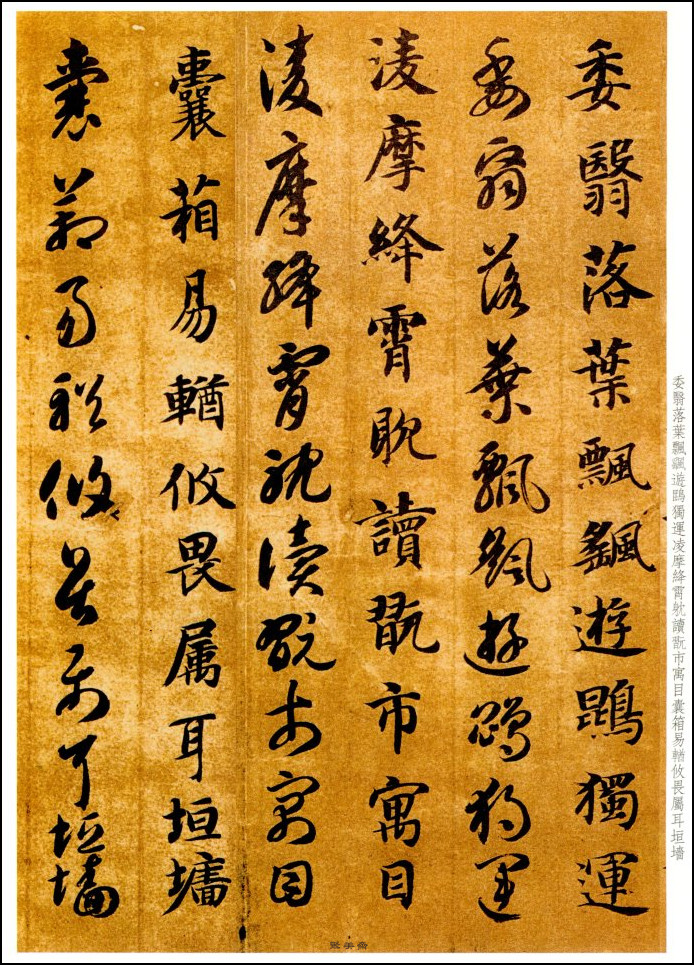 委翳落葉飄颻遊鵾獨運凌摩絳霄躭讀翫市寓目囊箱易輶攸畏屬耳垣墻
委翳落葉飄颻遊鵾獨運
委翳落葉飄颻遊鵾獨運
淩摩絳霄耽讀翫市寓目
淩摩絳霄耽讀翫市寓目
囊葙易輶攸畏属耳垣墻
囊葙易輶攸畏属耳垣墻